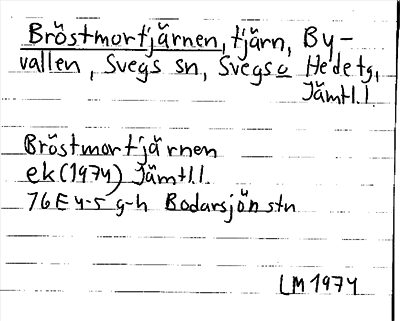 Bröstmortjärnen, tjärn, By-
vallen, Svegs sn, Svegs o Hede tg,
Jämtl.l.
Bröstmortjärnen
ek (1974) Jämtl.l.
76E 4-5 g-h Bodarsjön stn
LM 1974